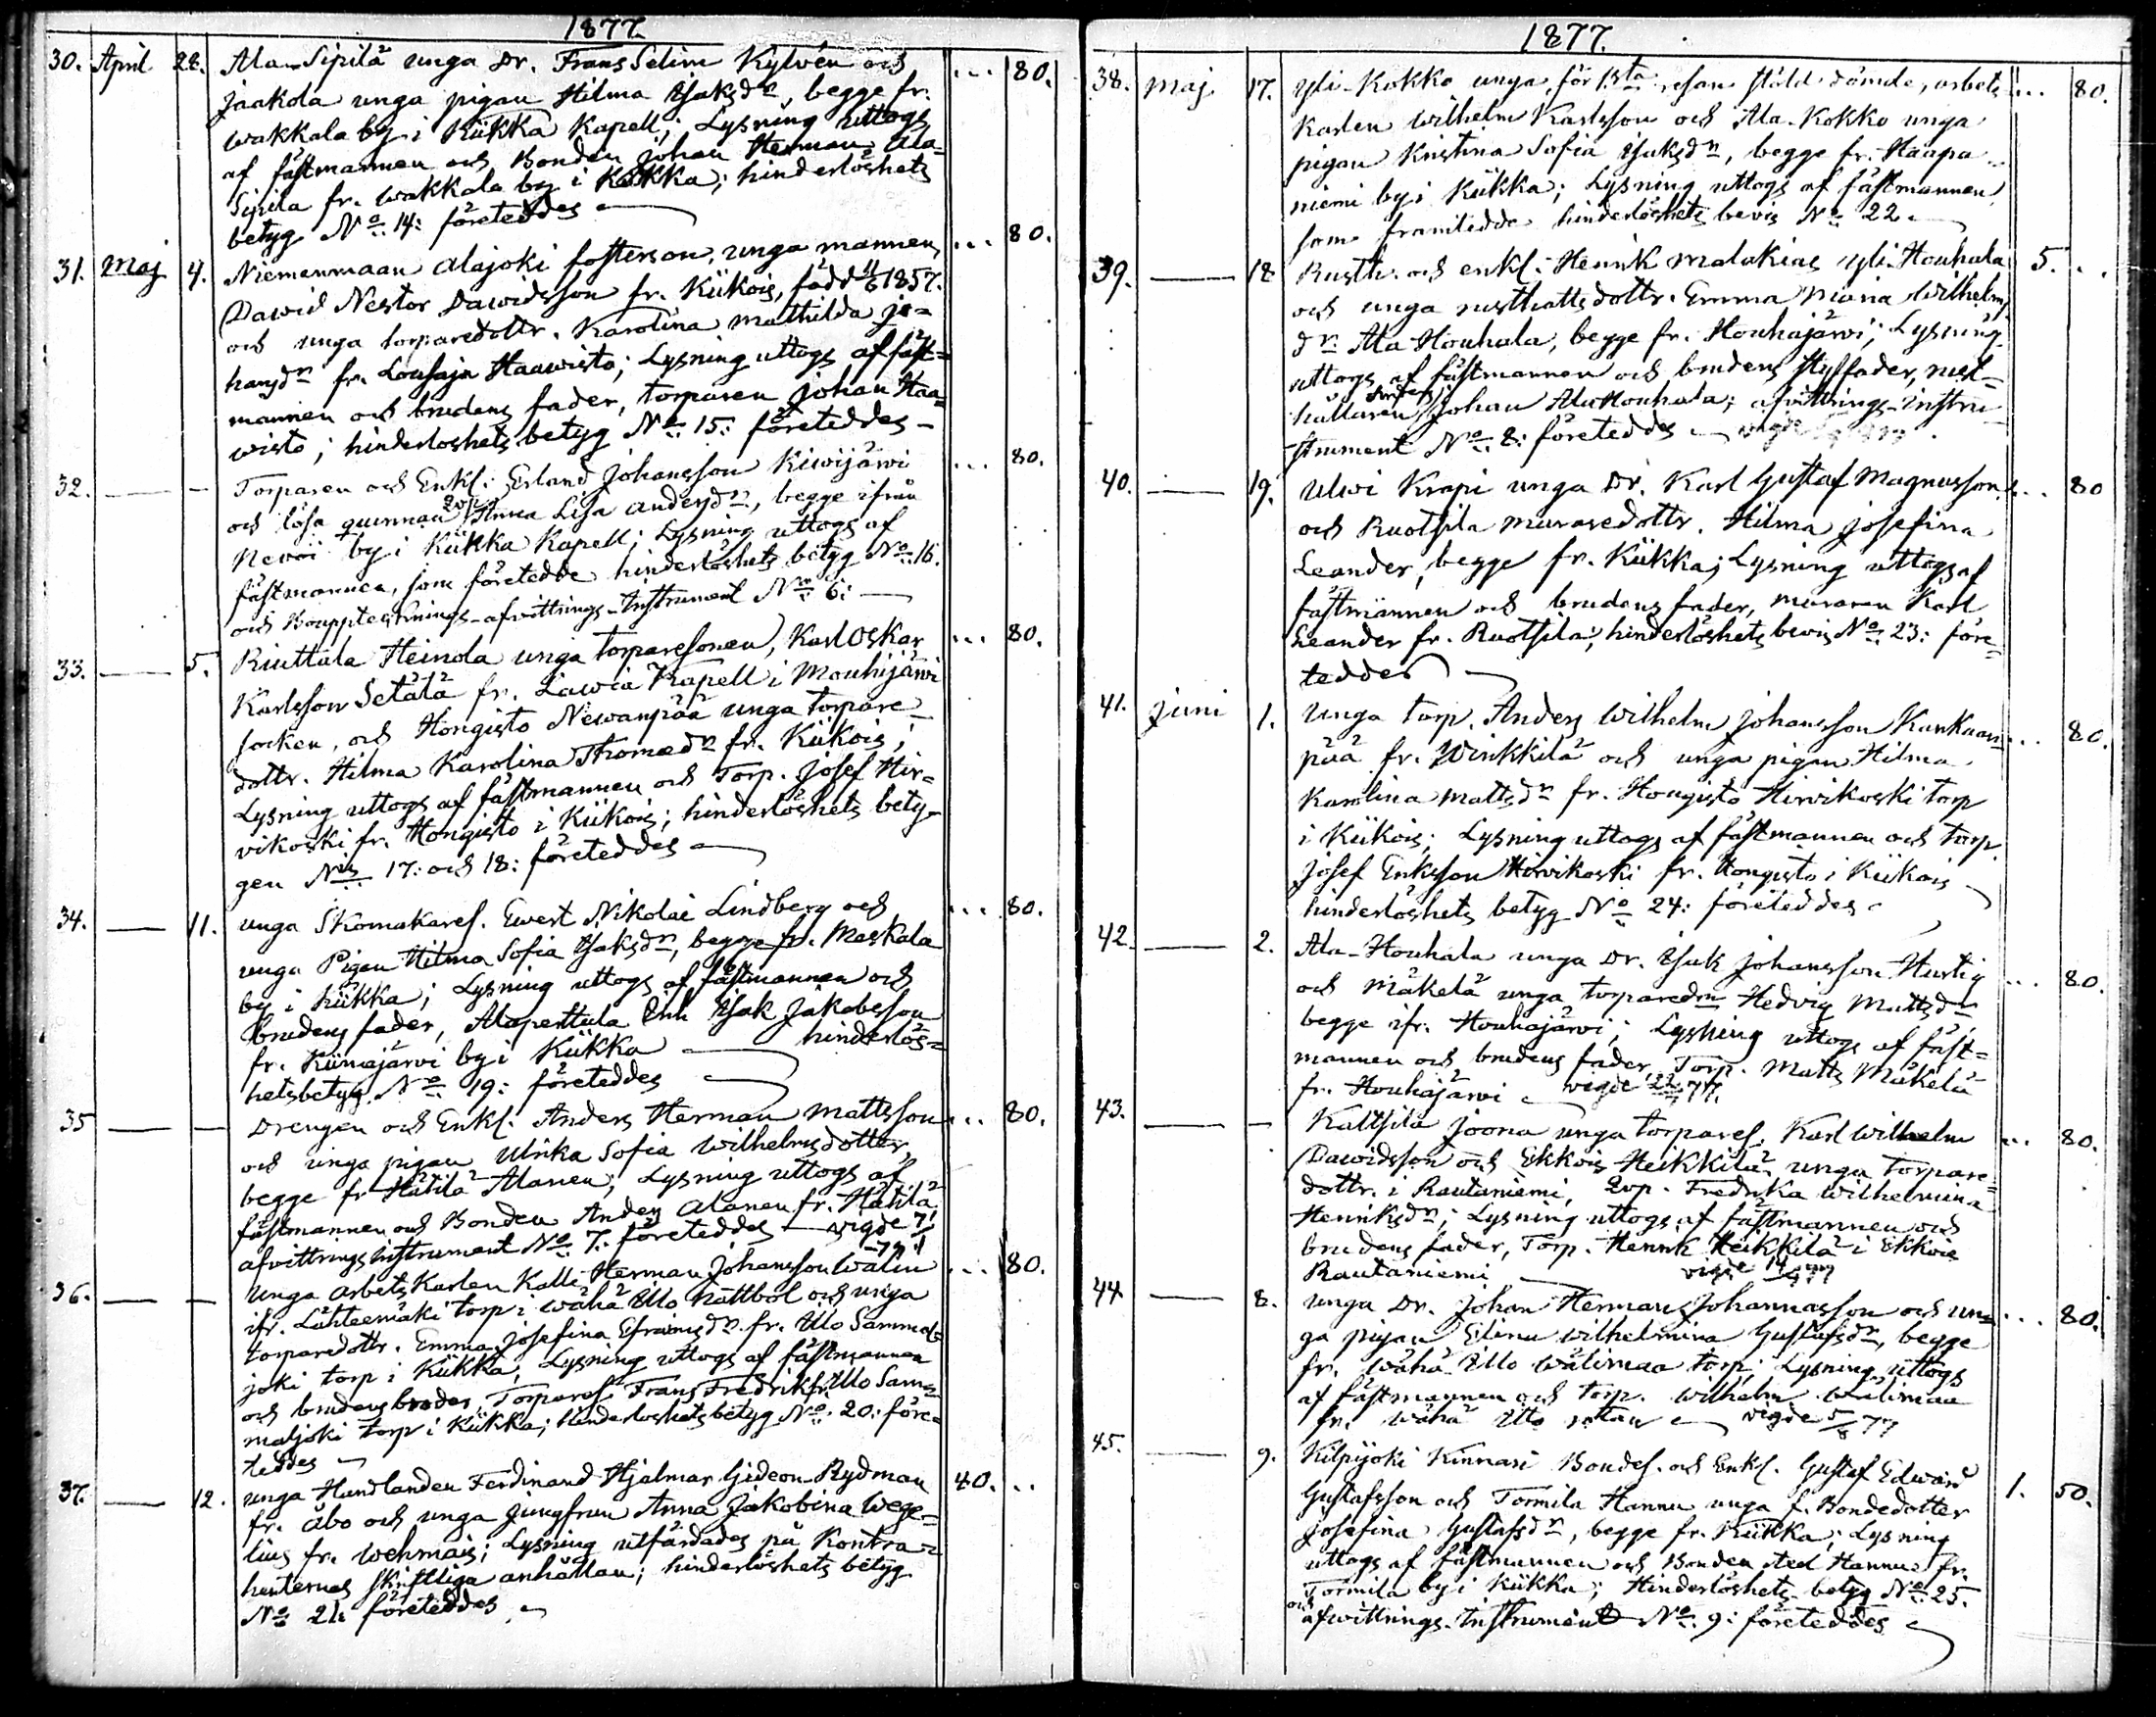 1877.
30. April 28. Ala-Sipilä unga Dr. Frans Selim Kylvén och ... 80.
Jaakola unga pigan Hilma Isaksdr, begge fr.
Wakkala by i Kiikka Kapell; Lysning uttogs
af fästmannen och Bonden Johan Herman Ala-
Sipilä fr. Wakkala by i Kiikka; hinderlöshets
betyg No 14: företeddes
31. Maj 4. Niemenmaan Alajoki fosterson, unga mannen, ... 80.
Dawid Nestor Dawidsson fr. Kiikois, född 11/6 1857.
och unga torparedottr. Karolina Mathilda Jo-
hansdr fr. Lousaja Haawisto; Lysning uttogs af fäst=
mannen och brudens fader, torparen Johan Haa=
wisto; hinderlöshets betyg No 15: företeddes -
32. — - Torparen och Enkl: Erland Johansson Kiwijärwi ... 80.
och lösa qvinnan Anna Lisa Andersdr, begge ifrån
by i Kiikka Kapell; Lysning uttogs af
fästmannen, som företedde hinderlöshets betyg No 16.
och Boupptecknings-afvittrings-Instrument No 6: —
33. — 5. Riuttala Heinola unga torparesonen, Karl Oskar ... 80.
Karlsson Setälä fr. Lawia Kapell i Mouhijärwi
socken, och Hongisto Newanpää unga torpare-
dottr. Hilma Karolina Thomædr fr. Kiikois;
Lysning uttogs af fästmannen och Torp. Josef Hir=
vikoski fr. Hongisto i Kiikois; hinderlöshets bety-
gen Nis 17: och 18: företeddes
34. — 11. unga Skomakares. Ewert Nikolai Lindberg och ... 80.
unga Pigan Hilma Sofia Isaksdr, begge fr. Meskala
by i Kiikka; Lysning uttogs af fästmannen och
brudens fader, Alaperttula Isak Jakobsson
fr. Kiimajärvi by i Kiikka — hinderlös=
hetsbetyg No 19: företeddes
35 — — Drengen och Enkl. Anders Herman Mattsson ... 80.
och unga pigan Ulrika Sofia Wilhelmsdotter,
begge fr Hätilä Alanen; Lysning uttogs af
fästmannen och Bonden Anders Alanen fr. Hätilä
afvittrings Instrument No 7. företeddes — vigde
36. — — unga arbets Karlen Kalle Herman Johansson Walin ... 80.
ifr. Lähteemäki torp i Wähä Illo Nättbol och unga
torparedottr. Emma Josefina Efraimsdr fr. Illo Sammal=
joki torp i Kiikka; Lysning uttogs af fästmannen
och brudens broder, Torpares. Frans Fredrik fr. Illo Sam=
maljoki torp i Kiikka; hinderlöshets betyg No 20: före=
teddes
37. — 12. unga Handlanden Ferdinand Hjalmar Gideon Rydman 40. ..
fr. Åbo och unga Jungfrun Anna Jakobina Wege=
lius fr. Wehmais; Lysning utfärdades på Kontra-
henternas skriftliga anhållan; hinderlöshets betyg
No 21: företeddes
1877.
38. Maj 17. Yli-Kokko unga, för 1sta resan stöld dömde, arbets ... 80.
Karlen Wilhelm Karlsson och Ala-Kokko unga
pigan Kristina Sofia Isaksdr, begge fr. Haapa-
niemi by i Kiikka; Lysning uttogs af fästmannen,
som framtedde hinderlöshets bevis No 22
39. — 18 Rusth. och enkl: Henrik Malakias Yli-Houhala 5. ..
och unga rusthållsdottr. Emma Maria Wilhelms
dr Ala Houhala, begge fr. Houhajärwi; Lysning
uttogs af fästmannen och brudens styffader, rust=
hållaren Johan Ala Houhala; afvittrings-Instru
strument No 8: företeddes — vigde
40. — 19. Ulwi Krapi unga Dr. Karl Gustaf Magnusson ... 80
och Ruotsila muraredottr. Hilma Josefina
Leander, begge fr. Kiikka; Lysning uttogs af
fästmannen och brudens fader, muraren Karl
Leander fr. Ruotsila; hinderlöshets bevis No 23: före=
teddes
41. Juni 1. Unga torp. Anders Wilhelm Johansson Kankaan= ... 80.
pää fr. Winkkilä och unga pigan Hilma
Karolina Mattsdr fr. Hongisto Hirvikoski torp
i Kiikois; Lysning uttogs af fästmannen och torp.
Josef Eriksson Hirvikoski fr. Hongisto i Kiikois
hinderlöshets betyg No 24: företeddes
42. — 2. Ala-Houhala unga Dr. Isak Johansson Hurtig ... 80.
och Mäkelä unga torparedr Hedvig Mattsdr
begge ifr. Houhajärvi; Lysning uttogs af fäst=
mannen och brudens fader, Torp. Matts Mäkelä
fr. Houhajärvi vigde 77.
43. — - Kaltsila Joona unga torpares. Karl Wilhelm ... 80.
Dawidsson och Ekkois Heikkilä unga torpare=
dottr. i Rautaniemi, Fredrika Wilhelmina
Henriksdr; Lysning uttogs af fästmannen och
brudens fader, Torp. Henrik Heikkilä i Ekkois
Rautaniemi — vigde
44 — 8. unga Dr. Johan Herman Johannesson och un= ... 80.
ga pigan Elina Wilhelmina Gustafsdr, begge
fr. Wähä Illo Wälimaa torp; Lysning uttogs
af fästmannen och torp. Wilhelm Wälimaa
fr. Wähä Illo — vigde 5/8 77
45. — 9. Kilpijoki Kinnari Bondes. och Enkl. Gustaf Edward 1. 50.
Gustafsson och Tormila Hannu unga f. Bondedotter
Josefina Gustafsdr, begge fr. Kiikka; Lysning
uttogs af fästmannen och Bonden Hannu fr.
Tormila by i Kiikka; Hinderlöshets betyg No 25.
och afwittrings-Instrument No 9: företeddes